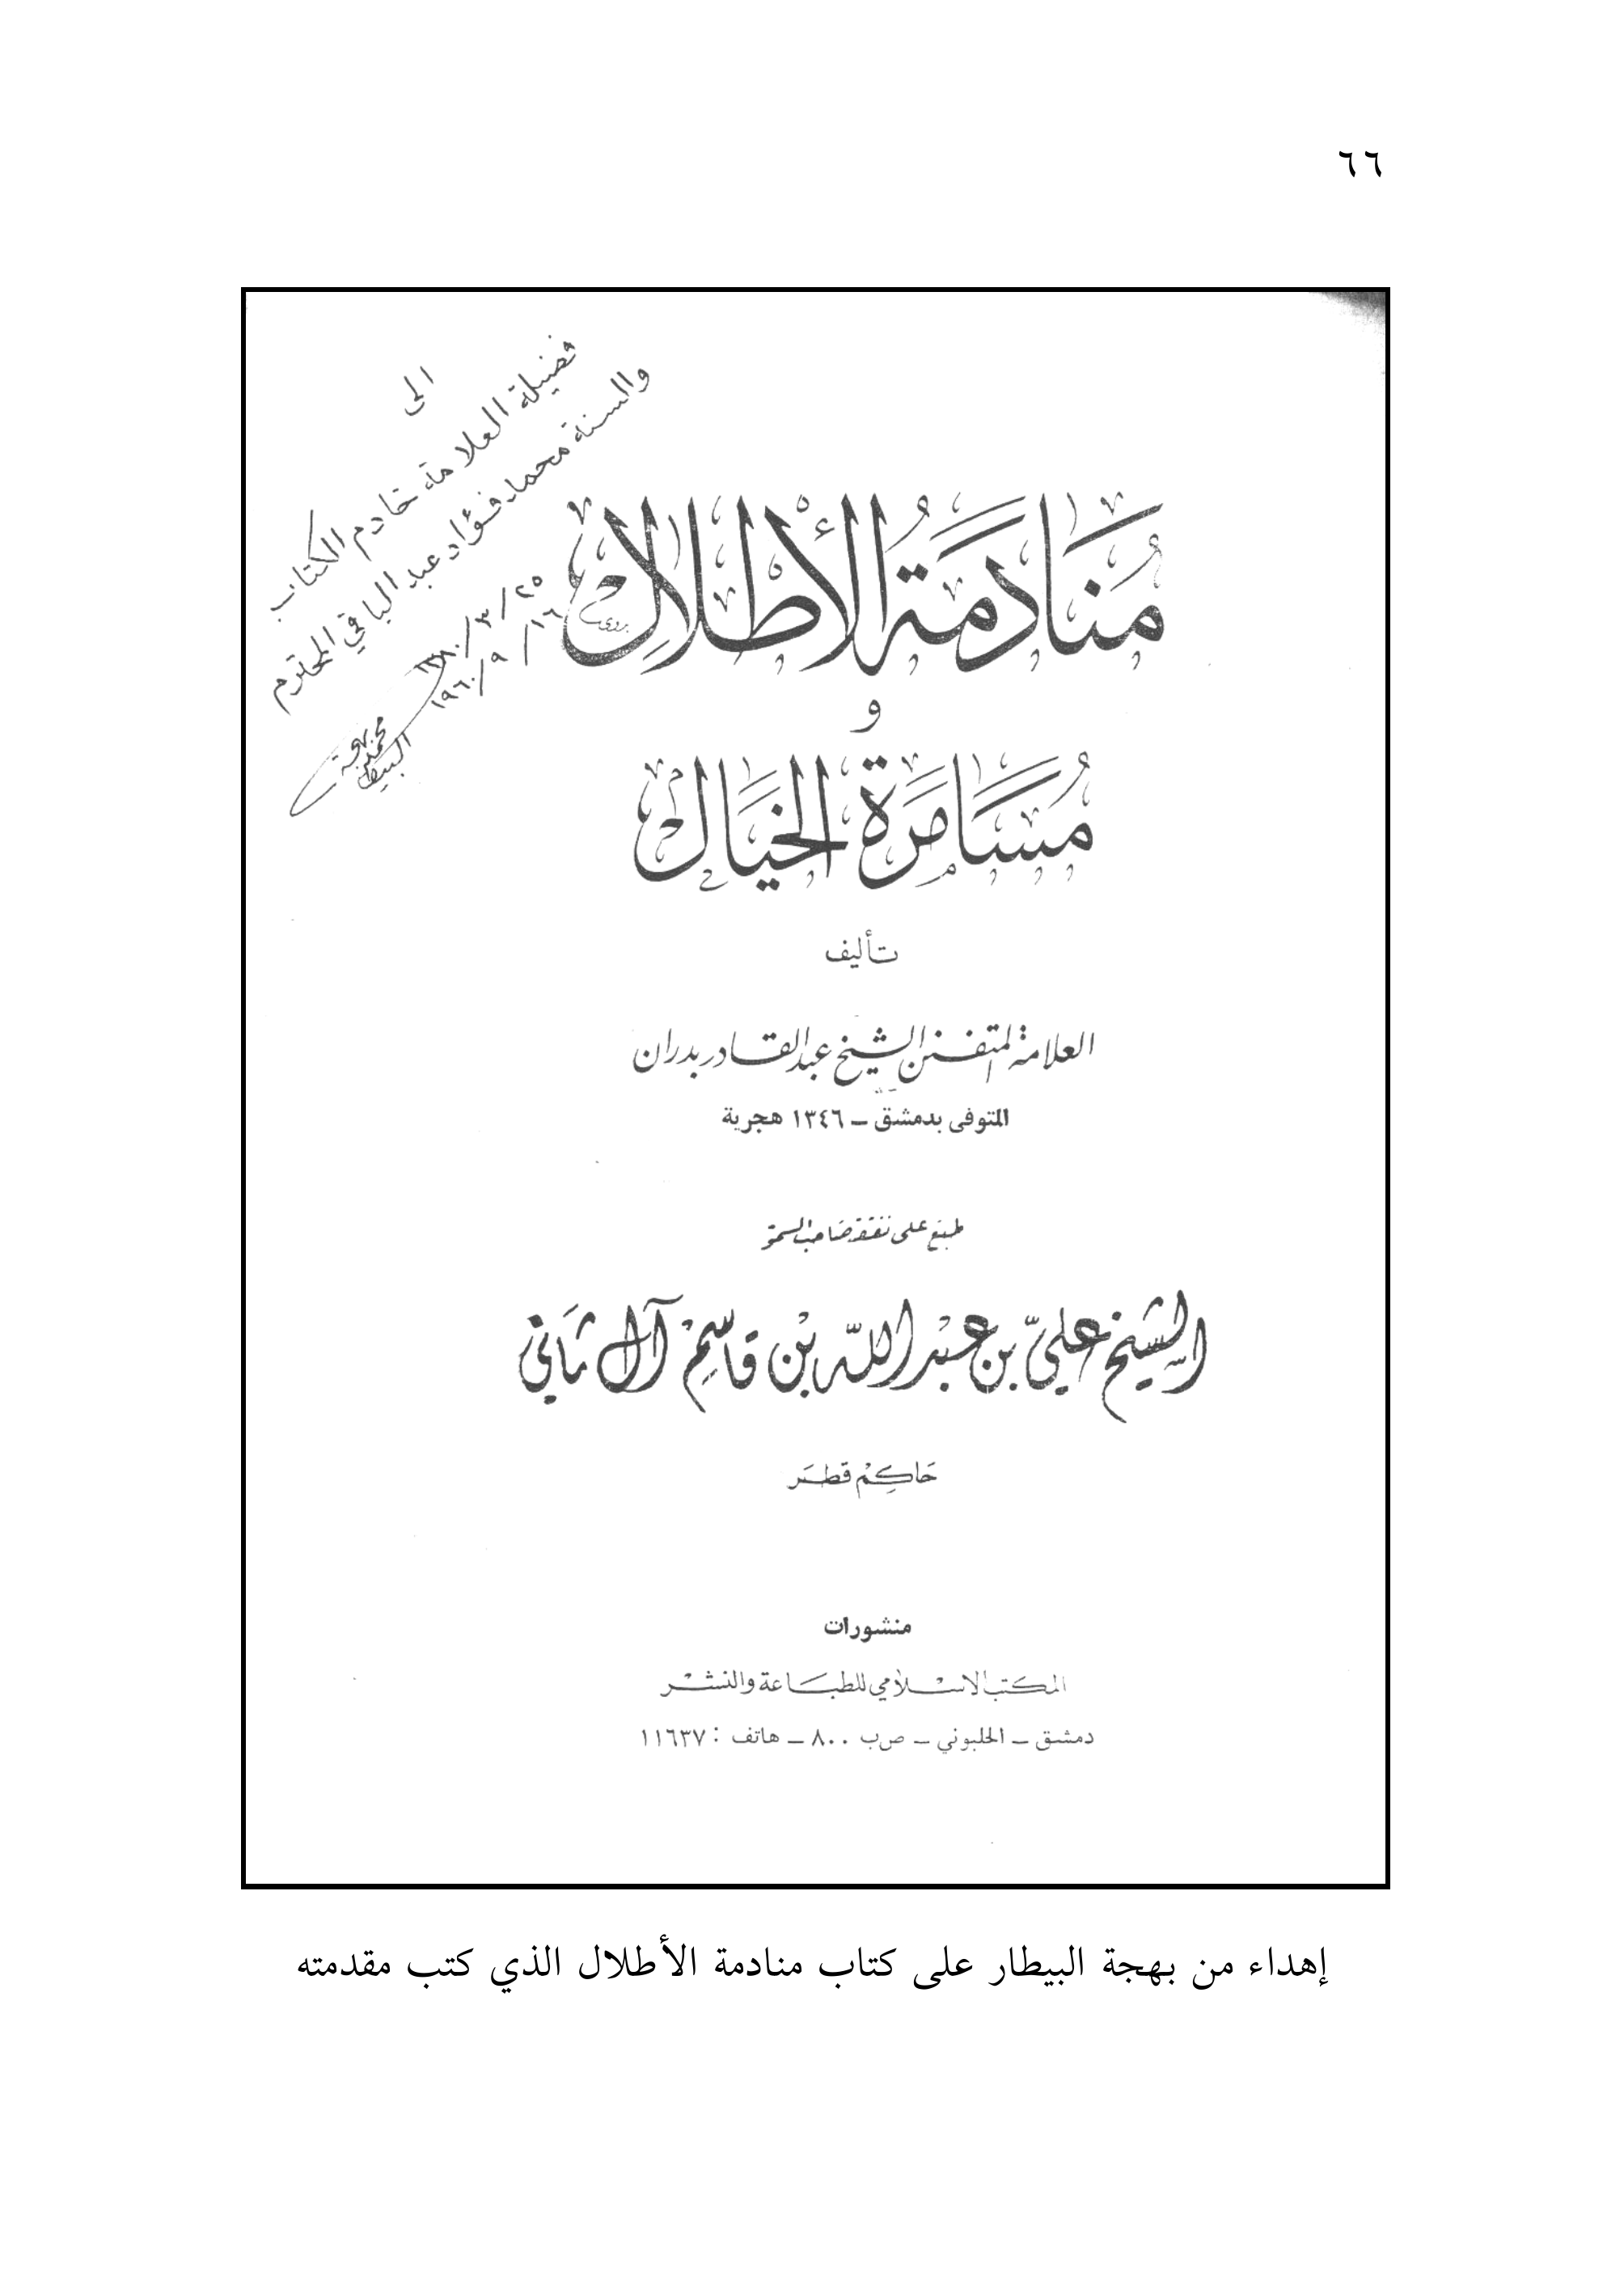 ٦٦
الى
فضيلة العلامة خادم الكتاب
والسنة محمد فؤاد عبد الباقي المحترم
٢٥/٣/١٣٨٠
١٦/٩/١٩٦٠
محمد بهجة
البيطار
مُنَادَمَةُ الأَطْلَالِ
و
مُسَامَرَةُ الخَيَالِ
تأليف
العلامة المتفنن الشيخ عبد القادر بدران
المتوفى بدمشق – ١٣٤٦ هجرية
طبع على نفقة صاحب السمو
الشيخ علي بن عبد الله بن قاسم آل ثاني
حاكم قطر
منشورات
المكتب الاسلامي للطباعة والنشر
دمشق – الحلبوني – ص ب ٨٠٠ – هاتف : ١١٦٣٧
إهداء من بهجة البيطار على كتاب منادمة الأطلال الذي كتب مقدمته